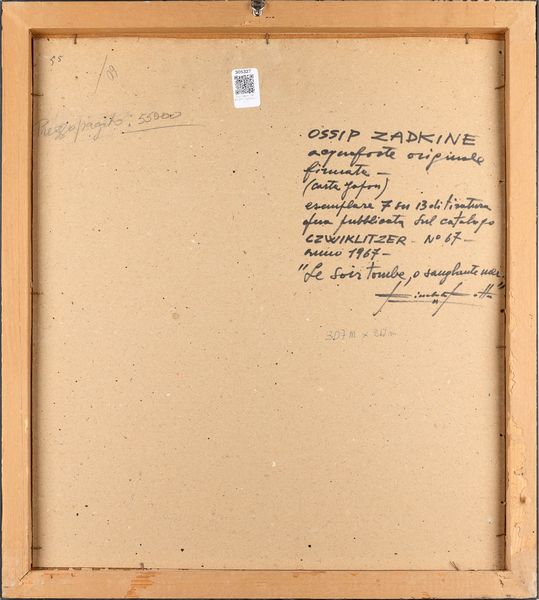 55
305327
Prezzo pagato: 55000
OSSIP ZADKINE
acquaforte originale
firmata -
(carta Japon)
esemplare 7 su 13 di tiratura
pubblicata sul catalogo
CZWIKLITZER - N° 67 -
anno 1967 -
"Le Soir tombe, o sanglante mer."